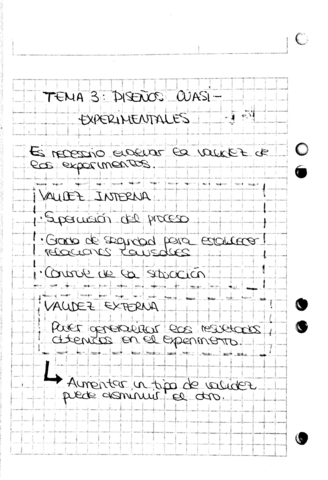 TEMA 3: DISEÑOS QUASI-
EXPERIMENTALES
Es necesario evaluar la validez de
los experimentos.
VALIDEZ INTERNA
· Supervisión del proceso
· Grado de seguridad para establecer
relaciones causales
· Control de la situación
VALIDEZ EXTERNA
Poder generalizar los resultados
obtenidos en el experimento.
↳ Aumentar un tipo de validez
puede disminuir el otro.